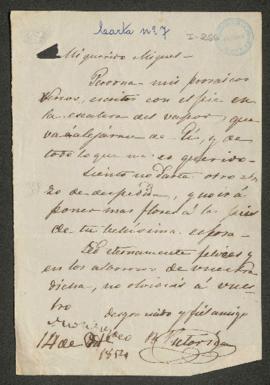 Carta nº 7
I-256
Mi querido Miguel-
Perdona mis prosaicos
versos, escritos con el pie en
la escalera del vapor, que
va á alejarme de Ti, y de
todo lo que me es querido.
Siento no darte otro
de despedida, y quisiera
poner mas flores á los pies
de tu bellisima esposa.
Sed eternamente felices y
en los de vuestra
dicha, no olvideis á vues-
tro
desgraciado y fiel amigo
14 de
1854